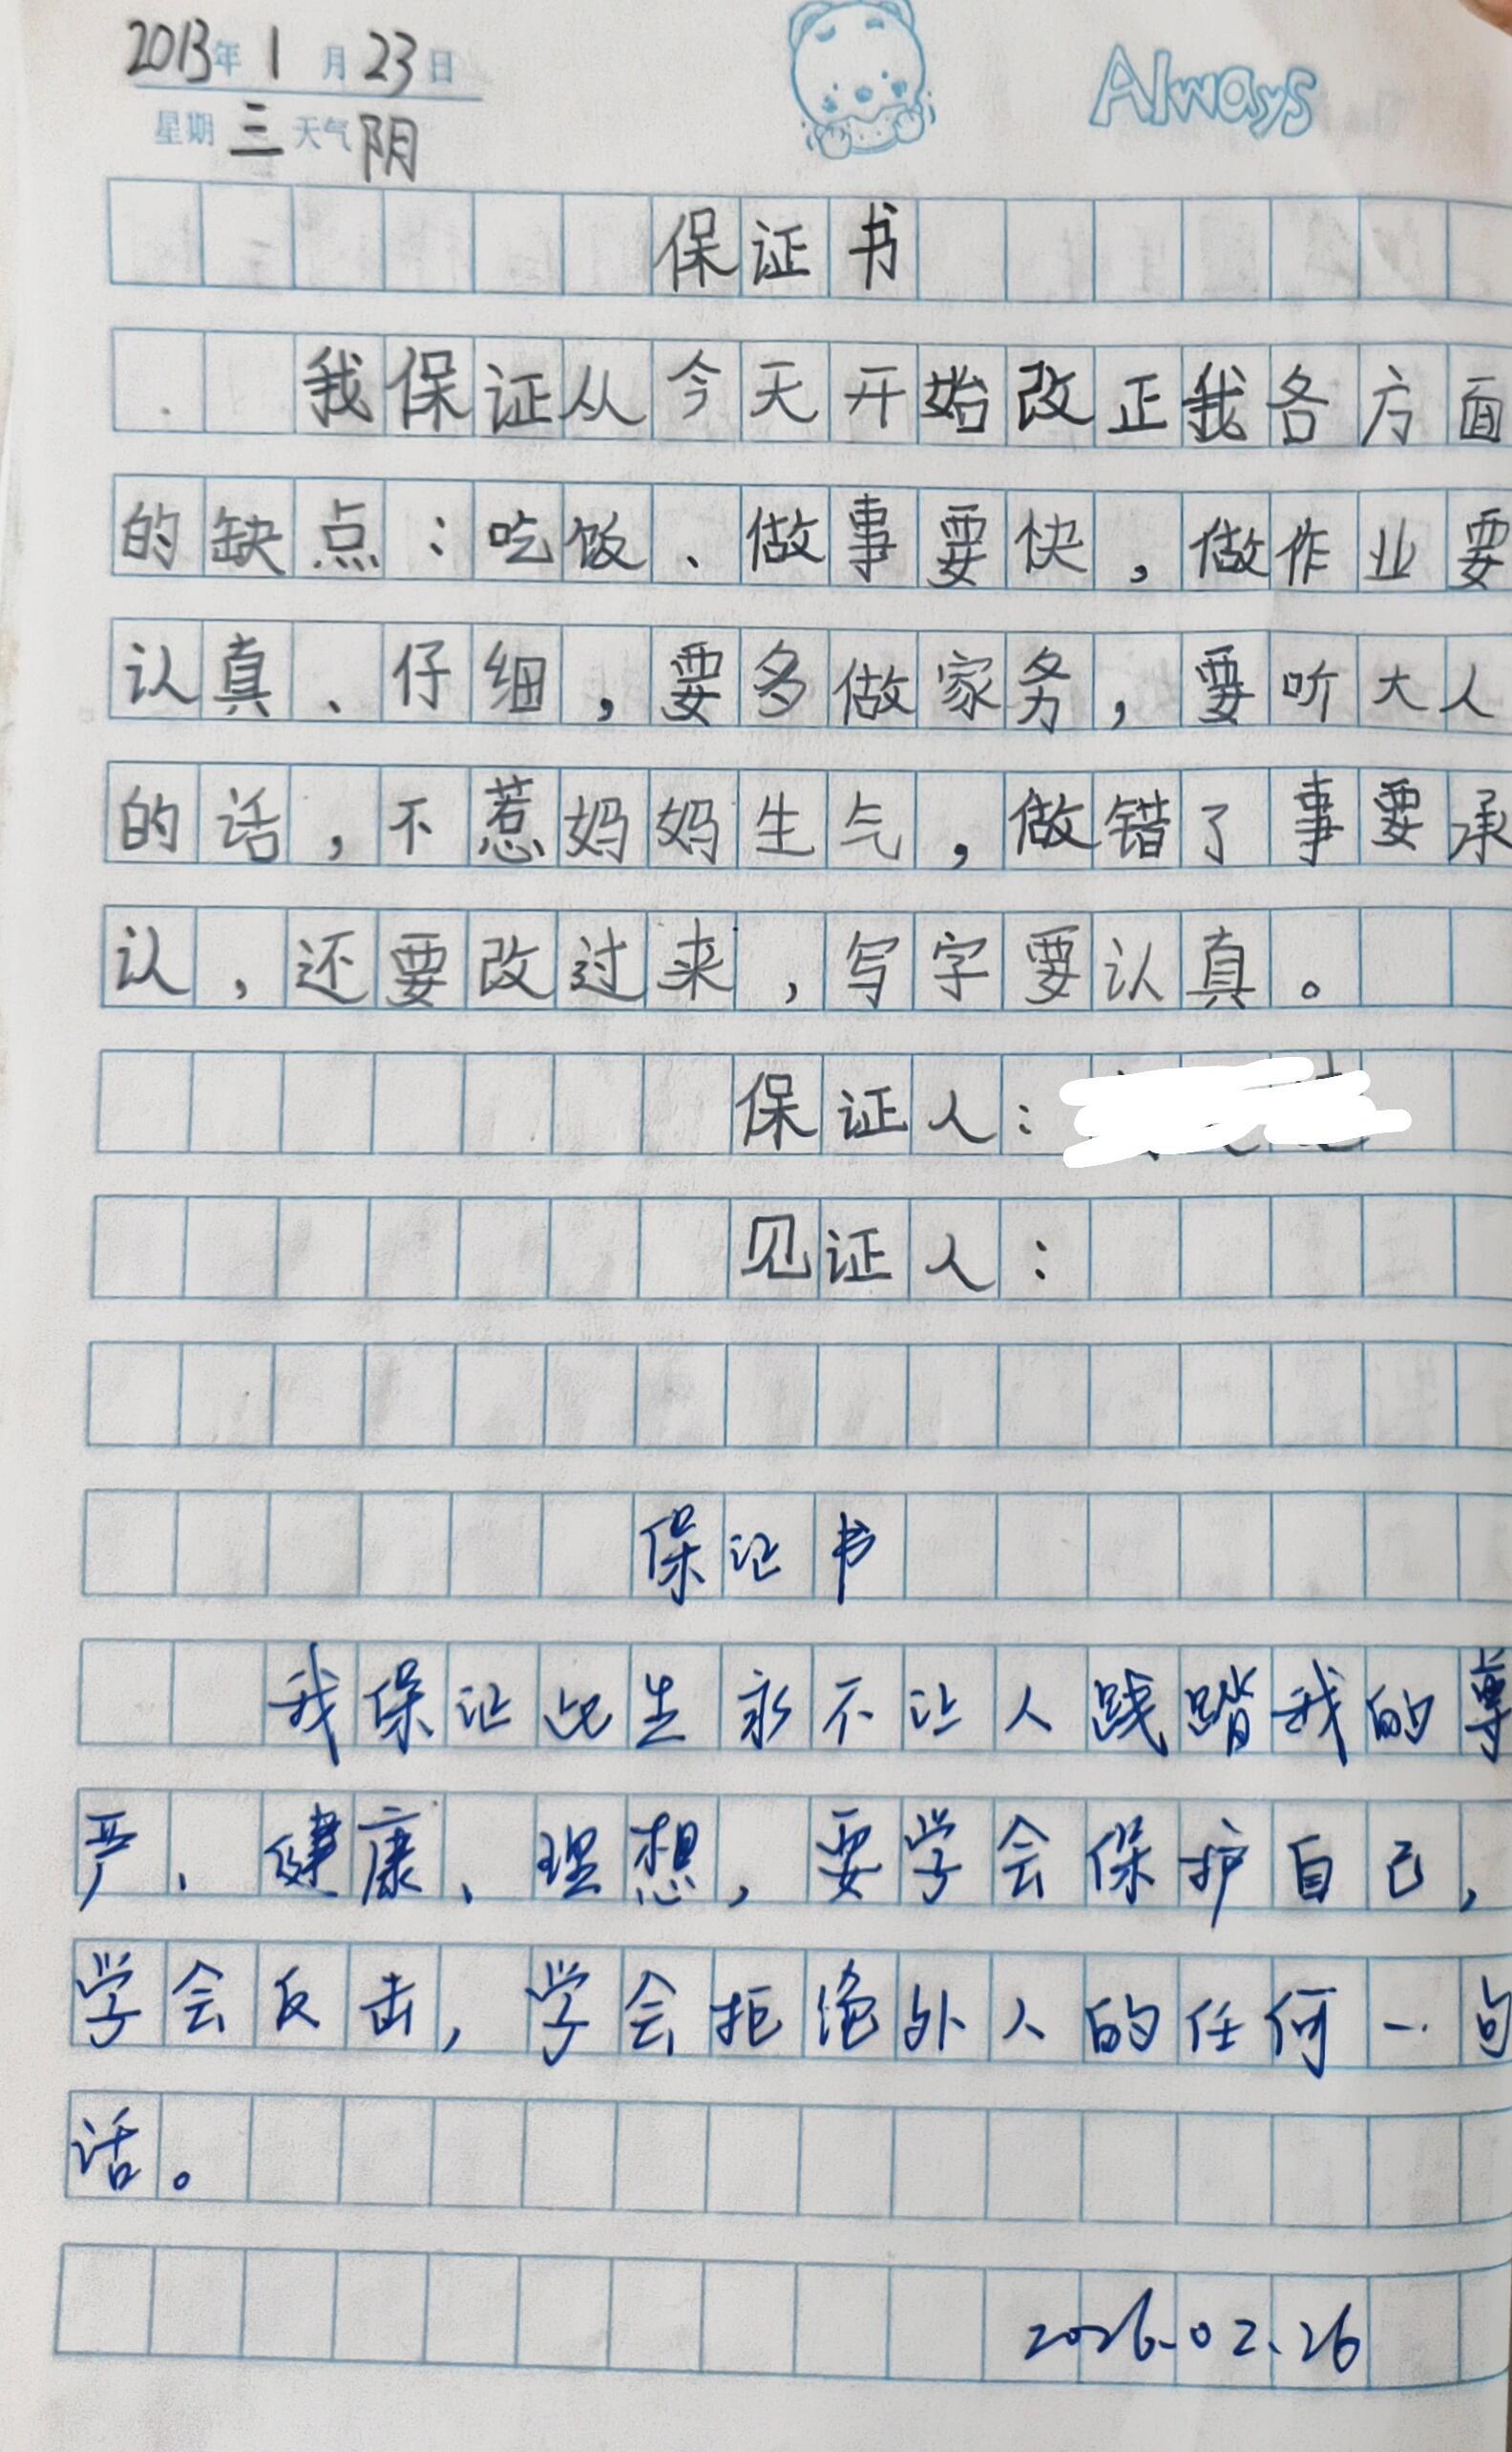 2013年1月23日
Always
星期三天气阴
保证书
我保证从今天开始改正我各方面
的缺点：吃饭、做事要快，做作业要
认真、仔细，要多做家务，要听大人
的话，不惹妈妈生气，做错了事要承
认，还要改过来，写字要认真。
保证人：
见证人：
保证书
我保证此生永不让人践踏我的尊
严、健康、理想，要学会保护自己，
学会反击，学会拒绝外人的任何一句
话。
2026.02.26